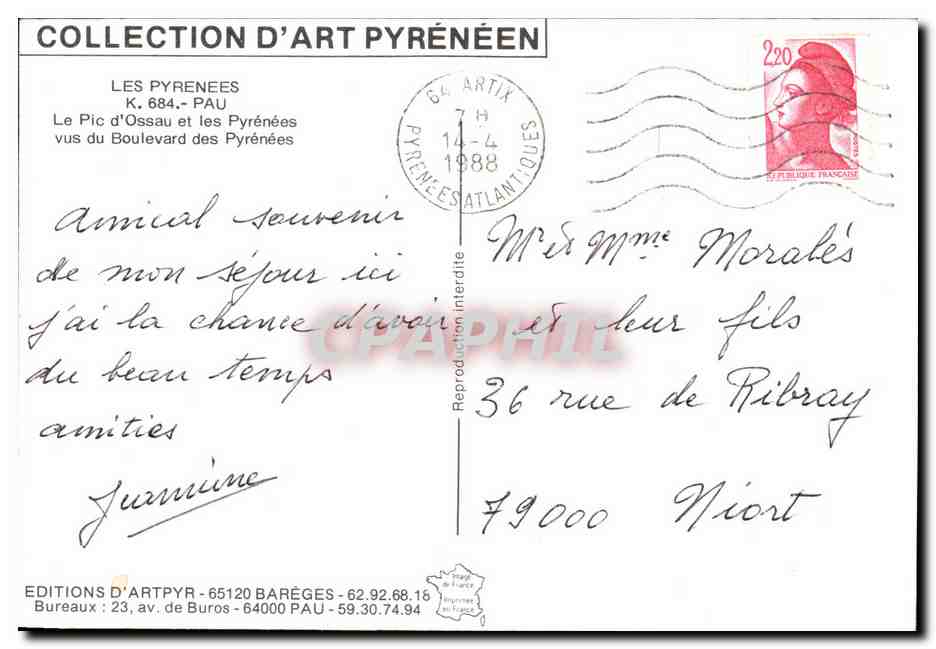 COLLECTION D'ART PYRÉNÉEN
LES PYRENEES
K. 684.- PAU
Le Pic d'Ossau et les Pyrénées
vus du Boulevard des Pyrénées
64 ARTIX
7H
14-4
1988
PYRENEES ATLANTIQUES
2,20
POSTES
REPUBLIQUE FRANÇAISE
Amical souvenir
de mon séjour ici
j'ai la chance d'avoir
du beau temps
amities
Jeannine
Reproduction interdite
CPAPHIL
Mr et Mme Moralés
et leur fils
36 rue de Ribray
79000 Niort
EDITIONS D'ARTPYR - 65120 BARÈGES - 62.92.68.18
Bureaux : 23, av. de Buros - 64000 PAU - 59.30.74.94
Image
de France
Imprimée
en France